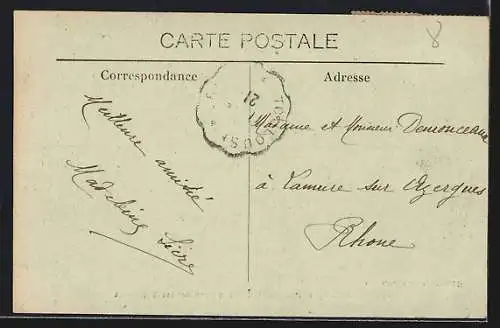 CARTE POSTALE
Correspondance
Adresse
8
TOULOUSE
21
Meilleure
amitié
Madeleine
Madame et Monsieur Demonceaux
à Lamure sur Azergues
Rhone